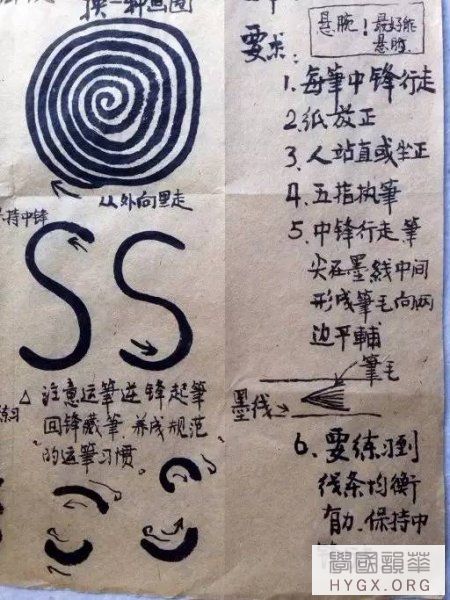 换一种画圈
从外向里走
持中锋
△ 注意运筆逆锋起筆
回锋藏筆.养成规范
"的运筆习惯"。
练习
悬腕！最好能
悬肘.
要求：
1. 每筆中锋行走
2.纸放正
3. 人站直或坐正
4. 五指执筆
5. 中锋行走.筆
尖在墨线中间
形成筆毛向两
边平輔
筆毛
墨线
6. 要练习到
线条均衡
有力.保持中
學國韻華
HYGX.ORG